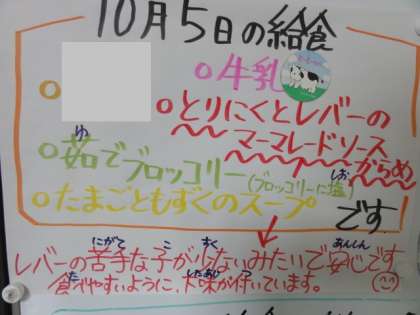 10月5日の給食
○牛乳
○
○とりにくとレバーの
マーマレードソース
からめ
○茹でブロッコリー(ブロッコリーに塩)
○たまごともずくのスープ
です
レバーの苦手な子が少ないみたいで安心です
食べやすいように、下味が付いています。